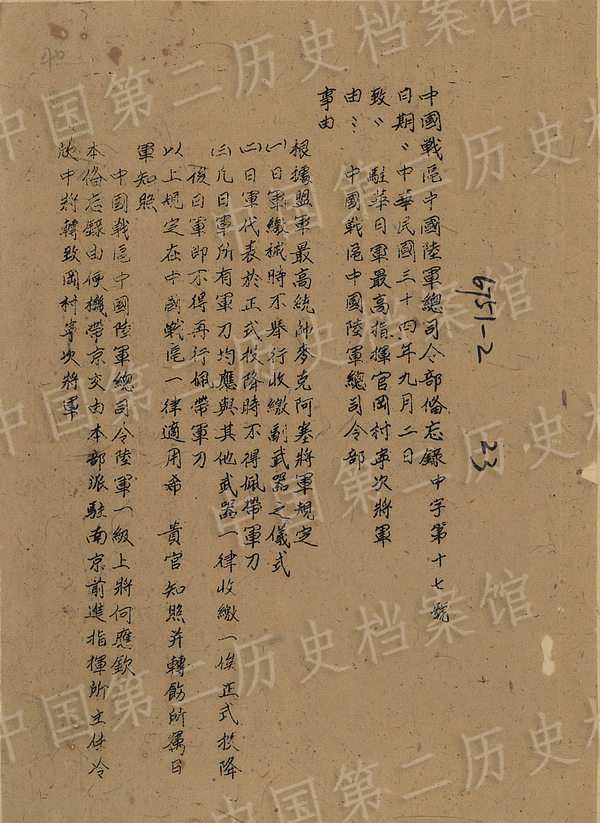 中國戰區中國陸軍總司令部備忘錄中字第十七號
日期：中華民國三十四年九月二日
致：駐華日軍最高指揮官岡村寧次將軍
由：中國戰區中國陸軍總司令部
事由
根據盟軍最高統帥麥克阿塞將軍規定
㈠日軍繳械時不舉行收繳副武器之儀式
㈡日軍代表於正式投降時不得佩帶軍刀
㈢凡日軍所有軍刀均應與其他武器一律收繳一俟正式投降
後日軍即不得再行佩帶軍刀
以上規定在中國戰區一律適用希 貴官知照并轉飭所屬日
軍知照
中國戰區中國陸軍總司令陸軍一級上將何應欽
本備忘錄由便機帶京交由本部派駐南京前進指揮所主任冷
欣中將轉致岡村寧次將軍
6751-2
23
40
中国第二历史档案馆
中国第二历史档案馆
中国第二历史档案馆
中国第二历史档案馆
中国第二历史档